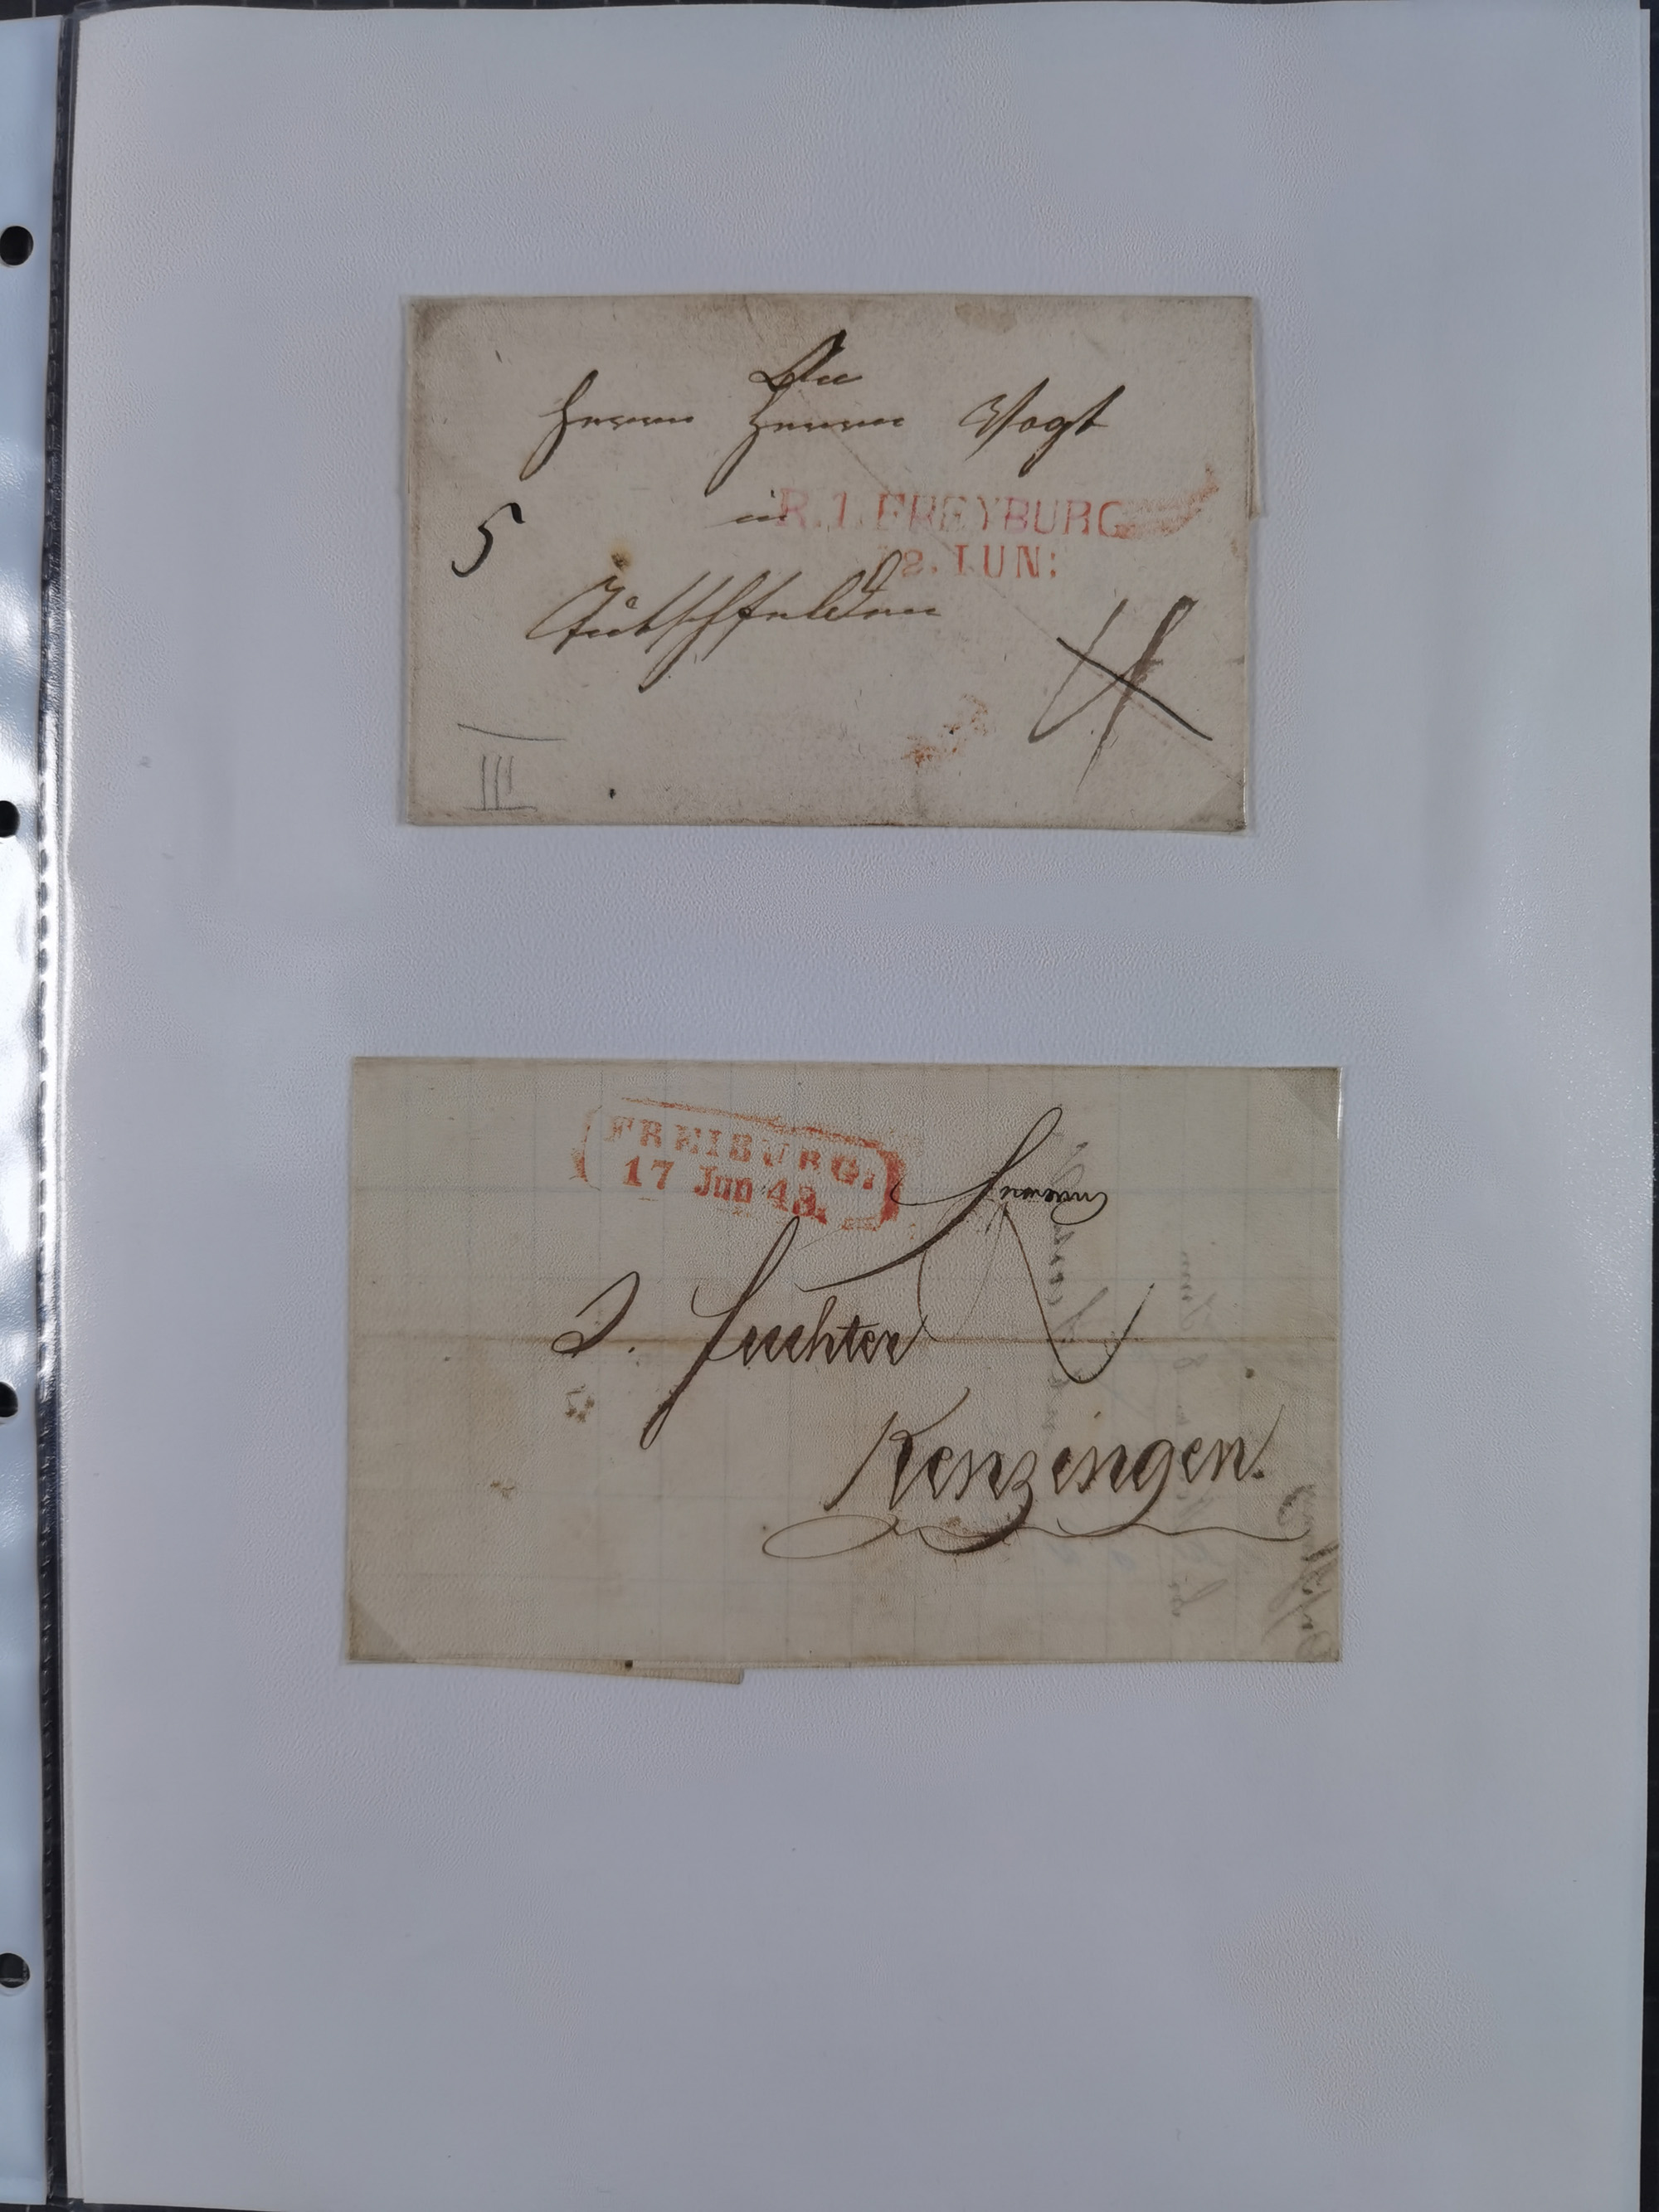 An
Herrn Herrn Vogt
in
R.1. FREYBURG
12. IUN:
5
4
III
FREIBURG.
17 Jun 48.
Herrn
J. Fuchter
Kenzingen.